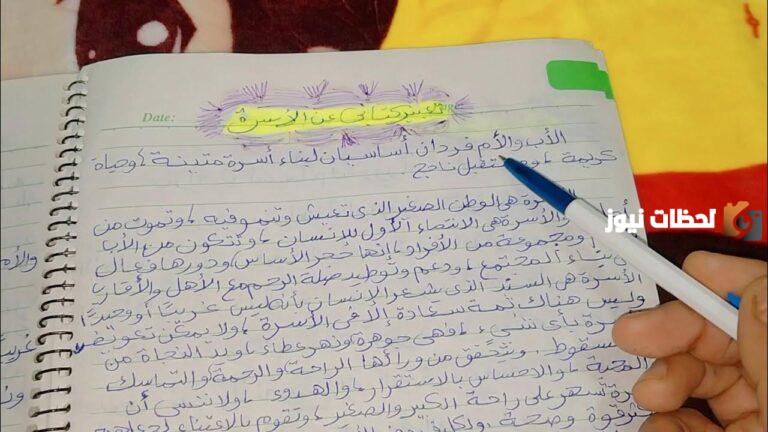 Date:
تعبير كتابي عن الأسرة
الأب والأم فردان أساسيان لبناء أسرة متينة ، وحياة
كريمة ، ناجح .
الأسرة هي الوطن الصغير الذي تعيش وتنمو فيه ، وتموت من
والأسرة هي الانتماء الأول للإنسان ، وتتكون من الأب
ومجموعة من الأفراد ، إنها حجر الأساس ودورها فعال
في بناء المجتمع ، ودعم وتوطيد صلة الرحم مع الأهل والأقارب
الأسرة هي السند الذي يشعر الإنسان بأنه ليس غريبًا أو وحيدًا
وليس هناك ثمة سعادة إلا في الأسرة ، ولا يمكن تعويض
بأي شيء ، فهي جوهرة ونهر عطاء ، ويد النجاة من
السقوط . وتتحقق من ورائها الراحة ، والرحمة ، والتماسك
المحبة ، والاحساس بالاستقرار ، والهدوء ، ولا ننسى أن
تسهر على راحة الكبير والصغير ، وتقوم بالاعتناء
قوة وصحة
والأم
غريبًا
لحظات نيوز